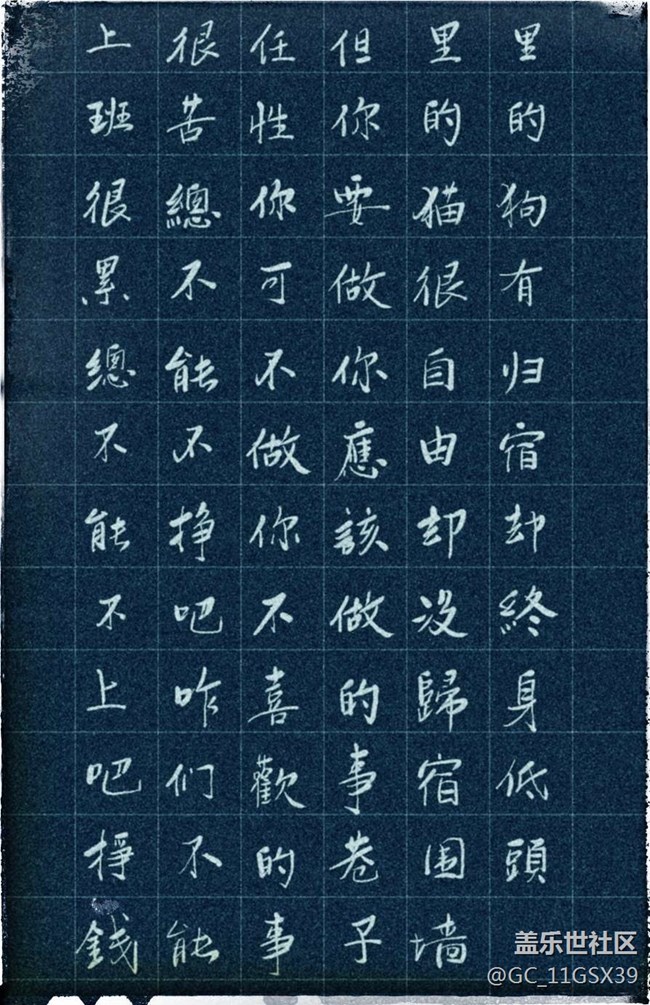 上班很累總不能不上吧掙錢
很苦總不能不挣吧咋们不能
任性你可不做你不喜歡的事
但你要做你應該做的事巷子
里的猫很自由却没歸宿围墙
里的狗有归宿却終身低頭
盖乐世社区
@GC_11GSX39